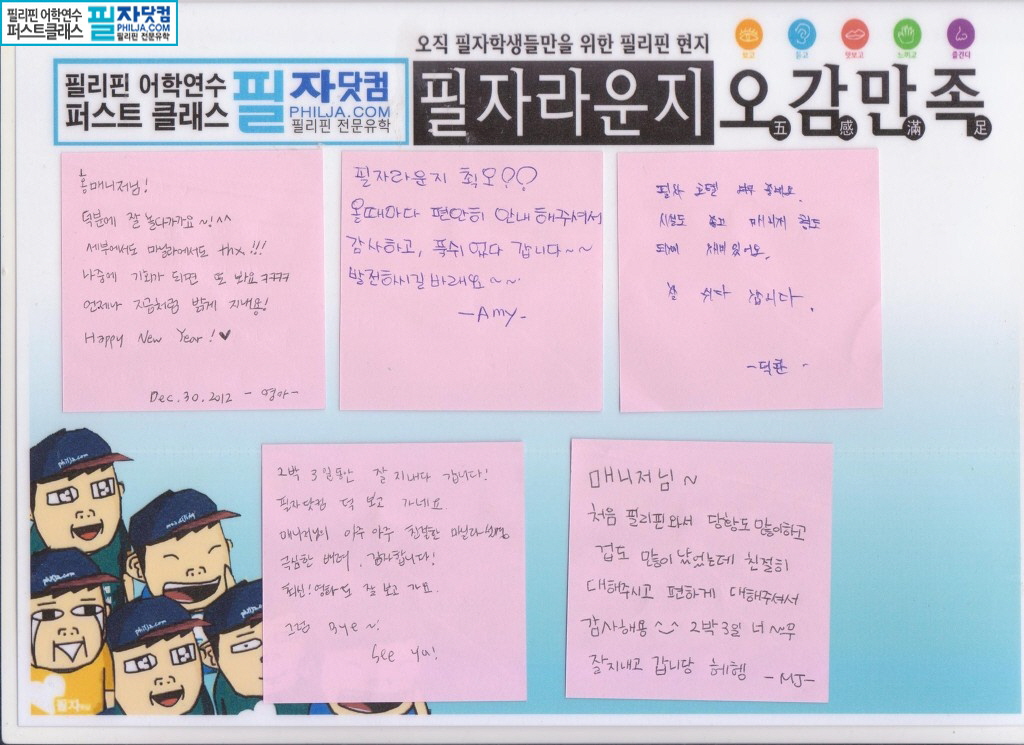 필리핀 어학연수
퍼스트클래스
필자닷컴
PHILJA.COM
필리핀 전문유학
오직 필자학생들만을 위한 필리핀 현지
보고
듣고
맛보고
느끼고
즐긴다
필리핀 어학연수
퍼스트 클래스
필자닷컴
PHILJA.COM
필리핀 전문유학
필자라운지
오감만족
五感滿足
홍매니저님!
덕분에 잘 놀다가가요~!^^
세부에서도 마닐라에서도 thx!!!
나중에 기회가 되면 또 봐요ㅋㅋㅋㅋ
언제나 지금처럼 밝게 지내용!
Happy New Year! ♥
Dec.30.2012 - 영아-
필자라운지 최고♡♡
올때마다 편안히 안내해주셔서
감사하고, 푹쉬었다 갑니다~~
발전하시길 바래요~~
-Amy-
필자 호텔 너무 좋네요
시설도 좋고 매니저
재미있어요.
잘 쉬다 갑니다.
2박 3일동안 잘 지내다 갑니다!
필자닷컴 덕 보고 가네요
매니저님의 아주 아주 친절한 마닐라설명
극심한 배려, 감사합니다!
최신! 영화도 잘 보고 가요.
그럼 Bye~!
See ya!
매니저님~
처음 필리핀와서 당황도많이하고
겁도 많이 났었는데 친절히
대해주시고 편하게 대해주셔서
감사해용^_^ 2박3일 너~~무
잘지내고 갑니당 헤헹 -MJ-
philja.com
philja.com
philja.com
philja.com
philja.com
필자닷컴